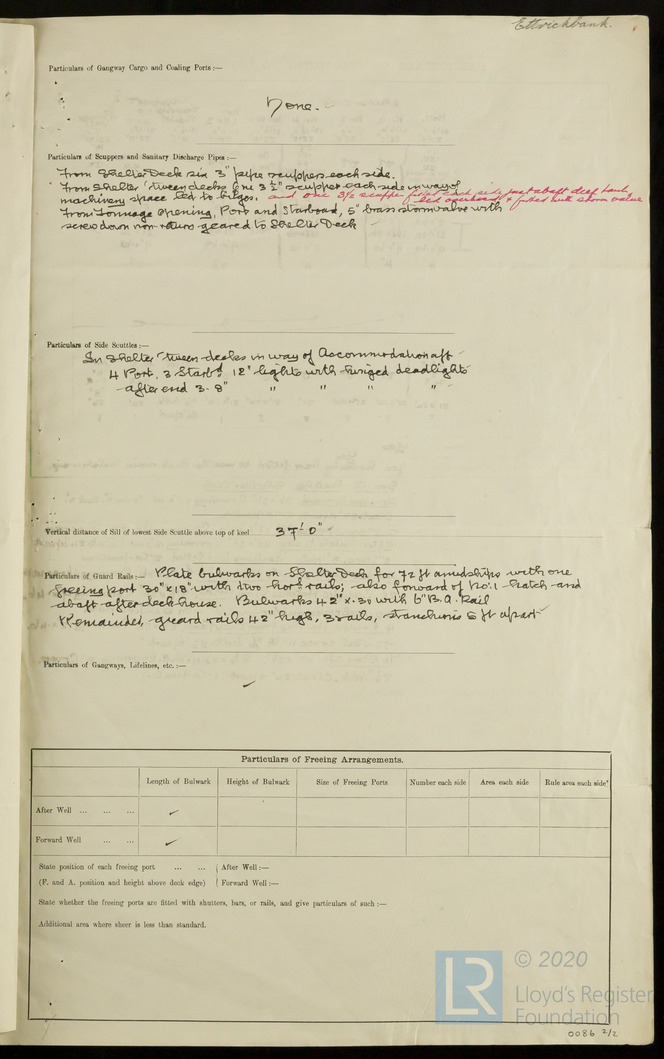 Ettrickbank.
Particulars of Gangway Cargo and Coaling Ports :—
None.
Particulars of Scuppers and Sanitary Discharge Pipes :—
From Shelter Deck six 3" pipe scuppers each side.
From Shelter 'tween decks One 3½" scupper each side in way of
machinery space led to bilges. and one 3½ scupper fitted each side just abaft deep tank, led overboard & fitted with storm valve
From Tonnage Opening, Port and Starboard, 5" brass storm valve with
screw down non-return geared to Shelter Deck
Particulars of Side Scuttles :—
In Shelter 'tween decks in way of Accommodation aft
4 Port, 3 Starbd 12" lights with hinged deadlights
after end 3 - 8" " " " "
Vertical distance of Sill of lowest Side Scuttle above top of keel 37' 0"
Particulars of Guard Rails :— Plate bulwarks on Shelter Deck for 72 ft amidships with one
freeing port 30" x 18" with two horl rails; also forward of No. 1 hatch and
abaft after deck house. Bulwarks 42" x .30 with 6" B.A. Rail
Remainder, guard rails 42" high, 3 rails, stanchions 5 ft apart
Particulars of Gangways, Lifelines, etc. :—
✓
Particulars of Freeing Arrangements.
Length of Bulwark Height of Bulwark Size of Freeing Ports Number each side Area each side Rule area each side*
After Well ... ... ... ✓
Forward Well ... ... ✓
State position of each freeing port ... ... { After Well :—
(F. and A. position and height above deck edge) { Forward Well :—
State whether the freeing ports are fitted with shutters, bars, or rails, and give particulars of such :—
Additional area where sheer is less than standard.
LR
© 2020
Lloyd's Register
Foundation
0086 2/2